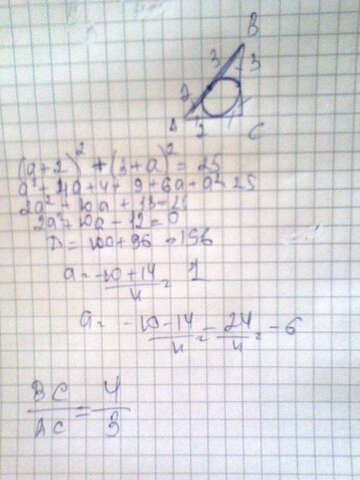 B
3 3
2
A 2 C
(a+2)² + (3+a)² = 25
a²+4a+4+9+6a+a²=25
2a²+10a+13=25
2a²+10a-12=0
D=100+96=196
a=\frac{-10+14}{4}=1
a=\frac{-10-14}{4}=\frac{-24}{4}=-6
\frac{BC}{AC}=\frac{4}{3}